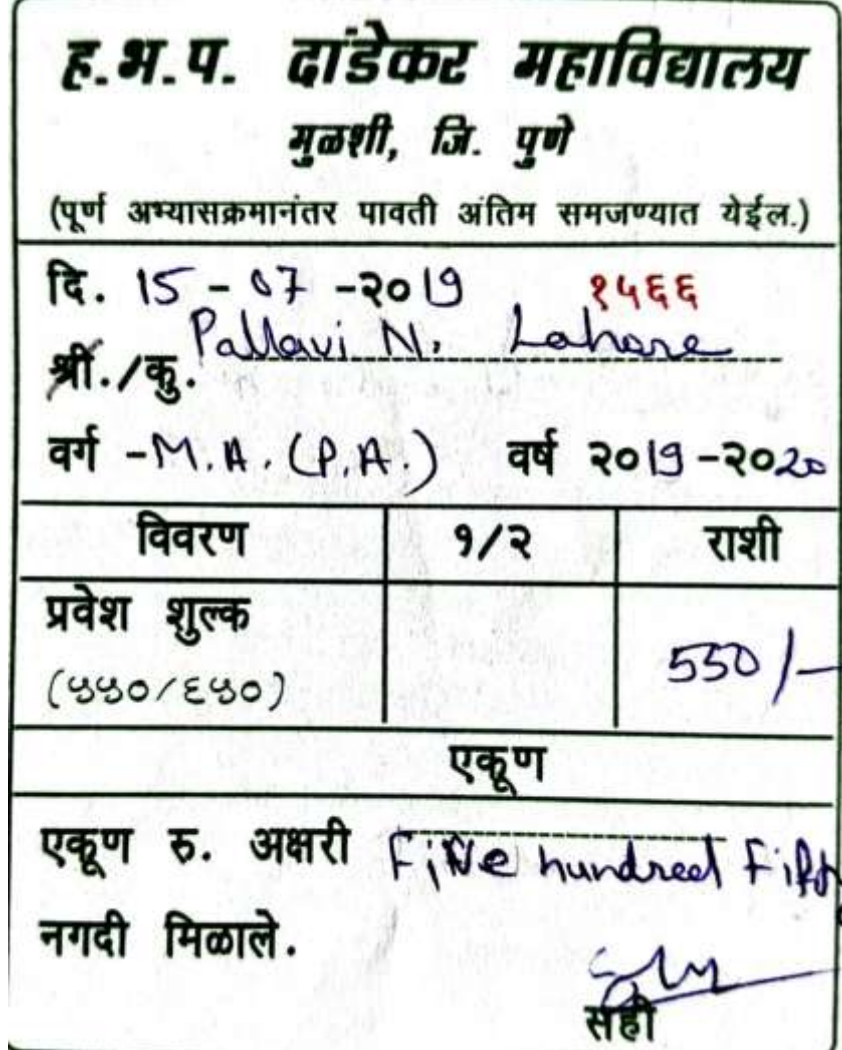 ह.भ.प. दांडेकर महाविद्यालय
मुळशी, जि. पुणे
(पूर्ण अभ्यासक्रमानंतर पावती अंतिम समजण्यात येईल.)
दि. 15 - 07 -२०19 १५६६
श्री./कु. Pallavi N. Lahare
वर्ग -M.A. (P.A.) वर्ष २०19-२०20
विवरण १/२ राशी
प्रवेश शुल्क
(५५०/६५०) 550/-
एकूण
एकूण रु. अक्षरी Five hundred Fifty
नगदी मिळाले.
सही